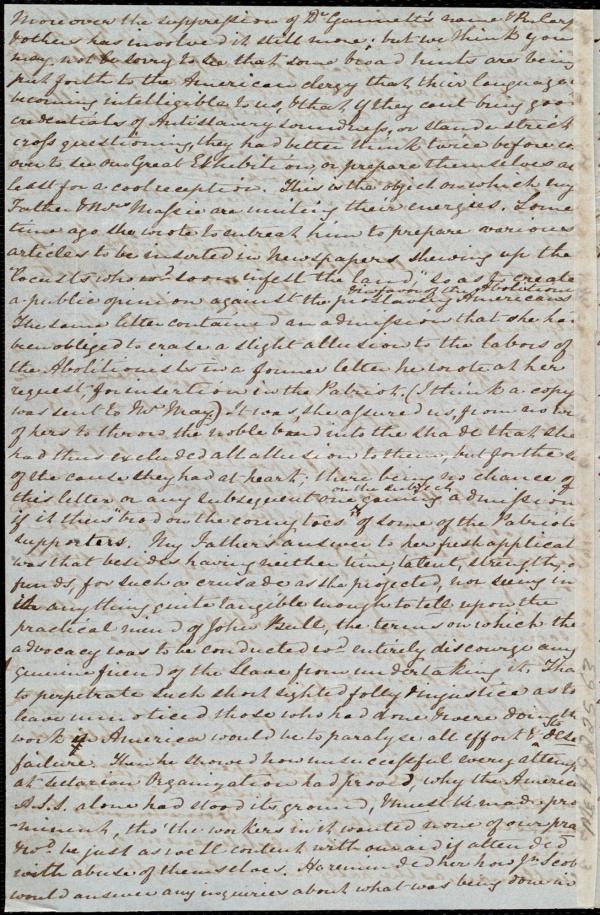 Moreover the suppression of Dr Gannett's name & Parker's
& others has involved it still more; but we think you
may not be sorry to see that some broad hints are being
put forth to the American clergy that their language is
becoming intelligible to us, & that if they cant bring good
credentials of Antislavery soundness, or stand a strict
cross questioning, they had better think twice before co
over to see our Great Exhibition or prepare themselves at
least for a cool reception. This is the object on which my
Father & Mrs Massie are uniting their energies. Some
time ago she wrote to entreat him to prepare various
articles to be inserted in Newspapers shewing up the
"locusts who wd soon infest the land" so as to create
a public opinion against the pro Slavery Americans
& in favor of the Abolitionists
The same letter contained an admission that she had
been obliged to erase a slight allusion to the labors of
the Abolitionists in a former letter he wrote at her
request for insertion in the Patriot. (I think a copy
was sent to Mr May) It was, she assured us, from no wish
of hers to throw the noble band into the shade that she
had thus excluded all allusion to them, but for the s
of the cause they had at heart; there being no chance of
this letter or any subsequent one on the subject gaining admission
if it thus "trod on the corny toes" of some of the Patriots
supporters. My Father's answer to her fresh applicat
was that besides having neither time, talent, strength, or
funds, for such a crusade as she projected, nor seeing in
it anything quite tangible enough to tell upon the
practical mind of John Bull, the terms on which the
advocacy was to be conducted wd entirely discourage any
genuine friend of the Slave from undertaking it. That
to perpetrate such short sighted folly & injustice as to
leave unnoticed those who had done & were doing the
work in America would be to paralyse all effort & to
failure. Then he showed how unsuccessful every attempt
at Sectarian Organization had proved, why the America
A.S.S. alone had stood its ground, & must be made pro
-minent, tho' the workers in it wanted none of our pra
& wd be just as well content with our aid if attended
with abuse of themselves. He reminded her how Jn Scob
would answer any inquiries about what was being done in